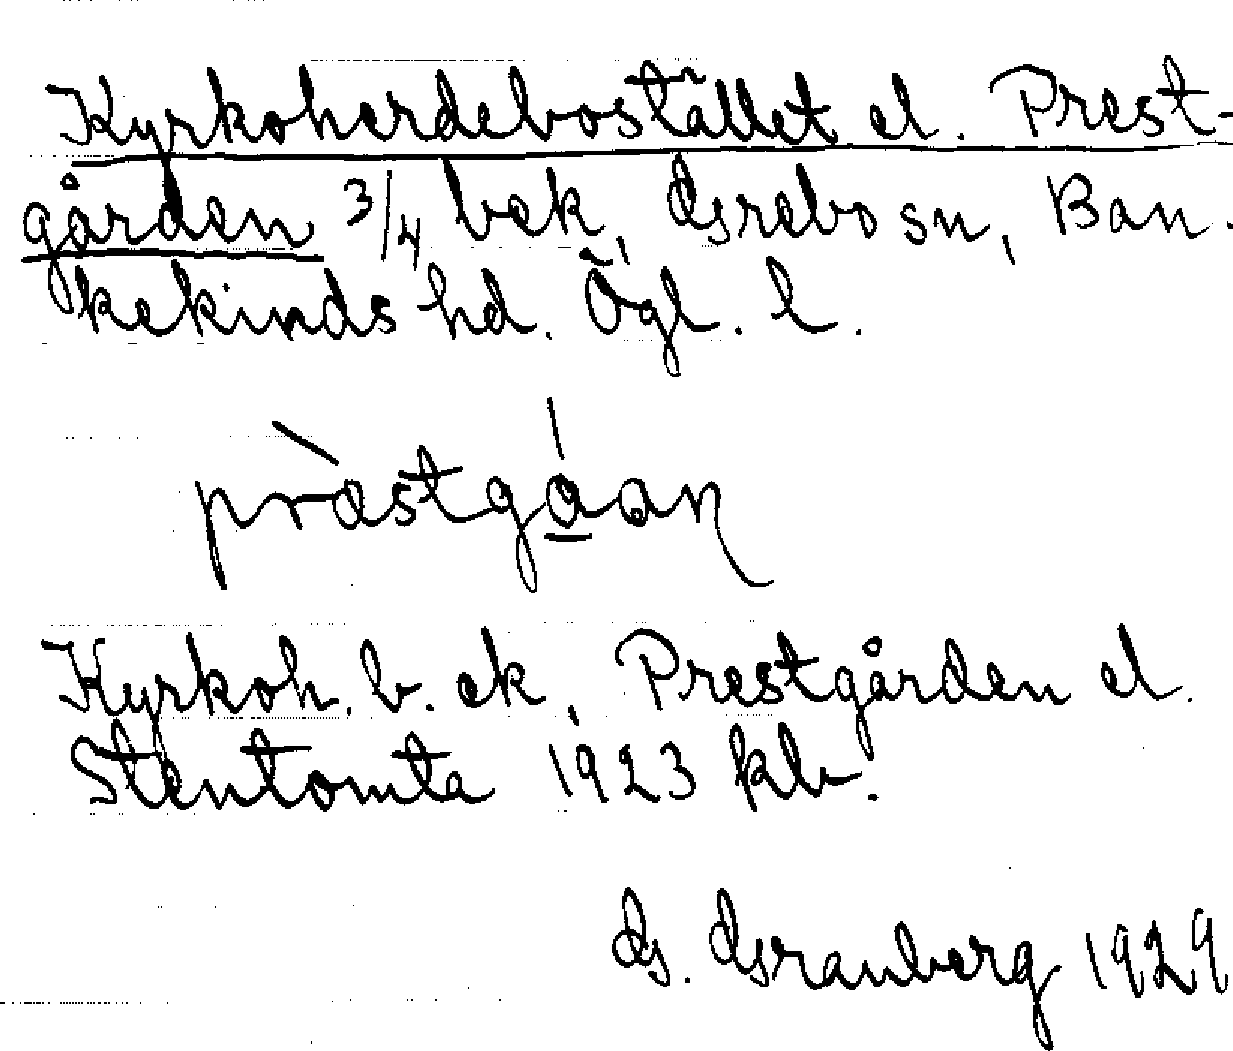 Kyrkoherdebostället el. Prest-
gården 3/4 bek, Grebo sn, Ban-
kekinds hd. Ögl. l.
prὰstgáan
Kyrkoh. b. ek, Prestgården el.
Stentomta 1923 kb.
G. Granberg 1929